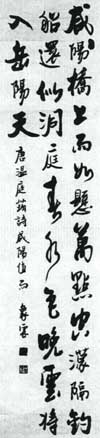 咸陽橋上雨如懸萬點空濛隔釣
船還似洞庭春水色晚雲將
入岳陽天
唐溫庭筠詩咸陽值雨